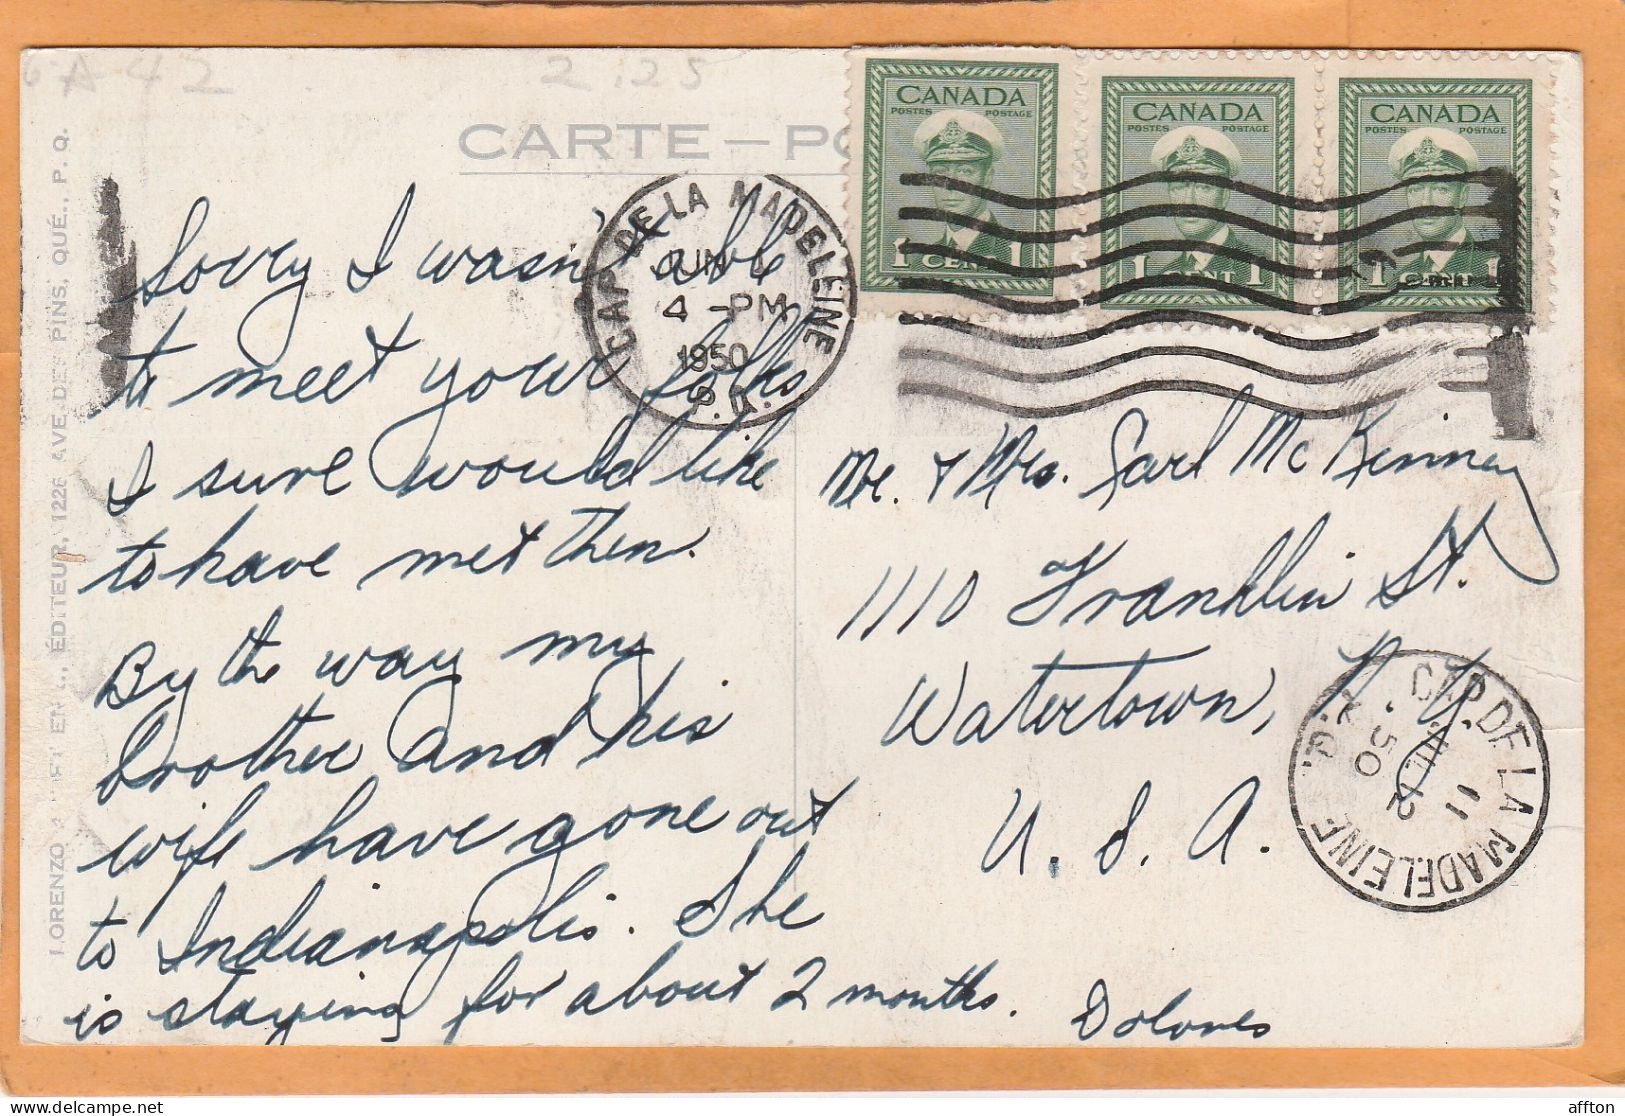 A42
2.25
CARTE – PO
CANADA
POSTES POSTAGE
1 CENT 1
CANADA
POSTES POSTAGE
1 CENT 1
CANADA
POSTES POSTAGE
1 CENT 1
CAP-DE-LA MADELEINE
JUN
4 -PM
1950
P.Q.
Sorry I wasn't able
to meet your folks
I sure would like
to have met them.
By the way my
brother and his
wife have gone out
to Indianapolis. She
is staying for about 2 months.
Dolores
Mr. & Mrs. Earl McKinney
1110 Franklin St.
Watertown, N.Y.
U.S.A.
CAP. DE LA MADELEINE
11
2
50
P.Q.
LORENZO ÉDITEUR, 1226 AVE. DES PINS, QUÉ., P. Q.
affton